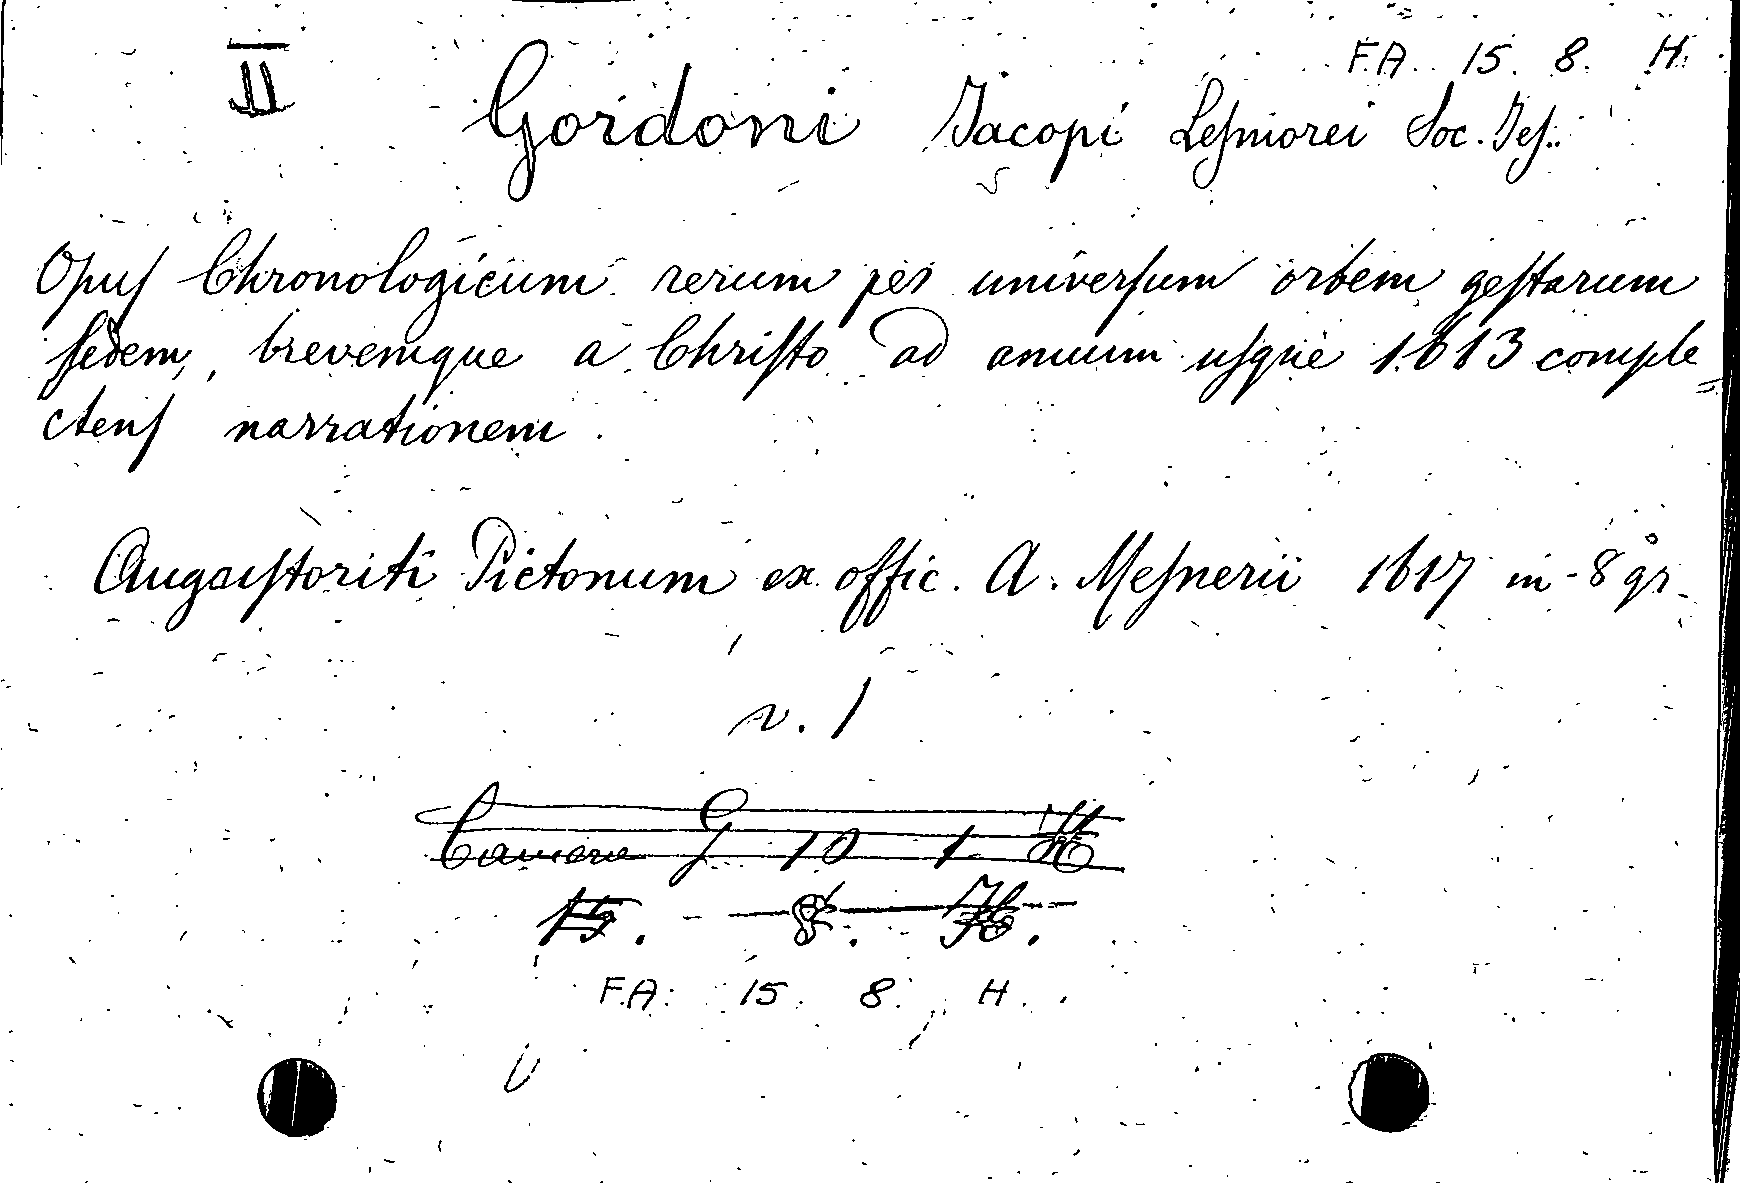 F.A. 15. 8. H.
II
Gordoni Jacopi Leſmorei Soc. Jeſ.
Opuſ Chronologicum rerum per univerſum orbem geſtarum
ſedem, brevemque a Chriſto ad annum uſque 1613 comple=
ctenſ narrationem.
Auguſtoriti Pictonum ex offic. A. Meſnerii 1617 in-8° gr.
v. 1
Camera G 10 1 H
15. 8. H.
F.A. 15. 8. H.